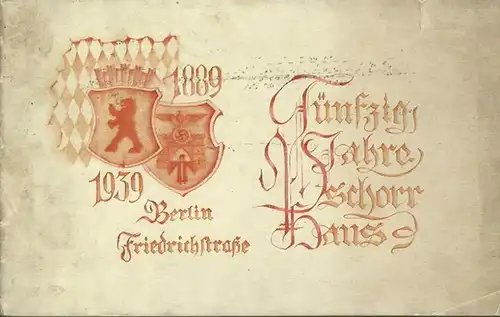 1889
1939
Berlin
Friedrichstraße
Fünfzig
Jahre
Pschorr
Haus